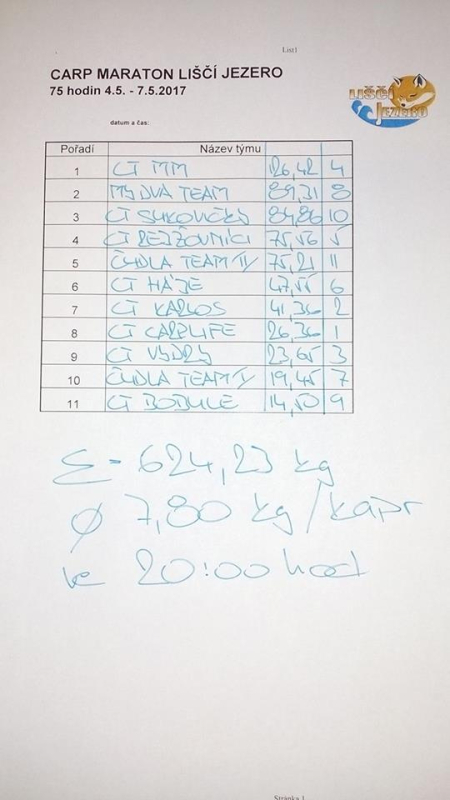 List1
CARP MARATON LIŠČÍ JEZERO
75 hodin 4.5. - 7.5.2017
LIŠČÍ
JEZERO
datum a čas:
Pořadí Název týmu
1 CT MM 126,42 4
2 MY DVA TEAM 89,31 8
3 CT SUKOVIČKY 84,86 10
4 CT 75,56 5
5 ČUDLA TEAM II 75,21 11
6 CT HÁJE 47,55 6
7 CT KARLOS 41,36 2
8 CT CARPLIFE 26,36 1
9 CT VYDRY 23,65 3
10 ČUDLA TEAM I 19,45 7
11 CT BOBULE 14,50 9
Σ = 624,23 kg
Ø 7,80 kg/kapr
ke 20:00 hod
Stránka 1